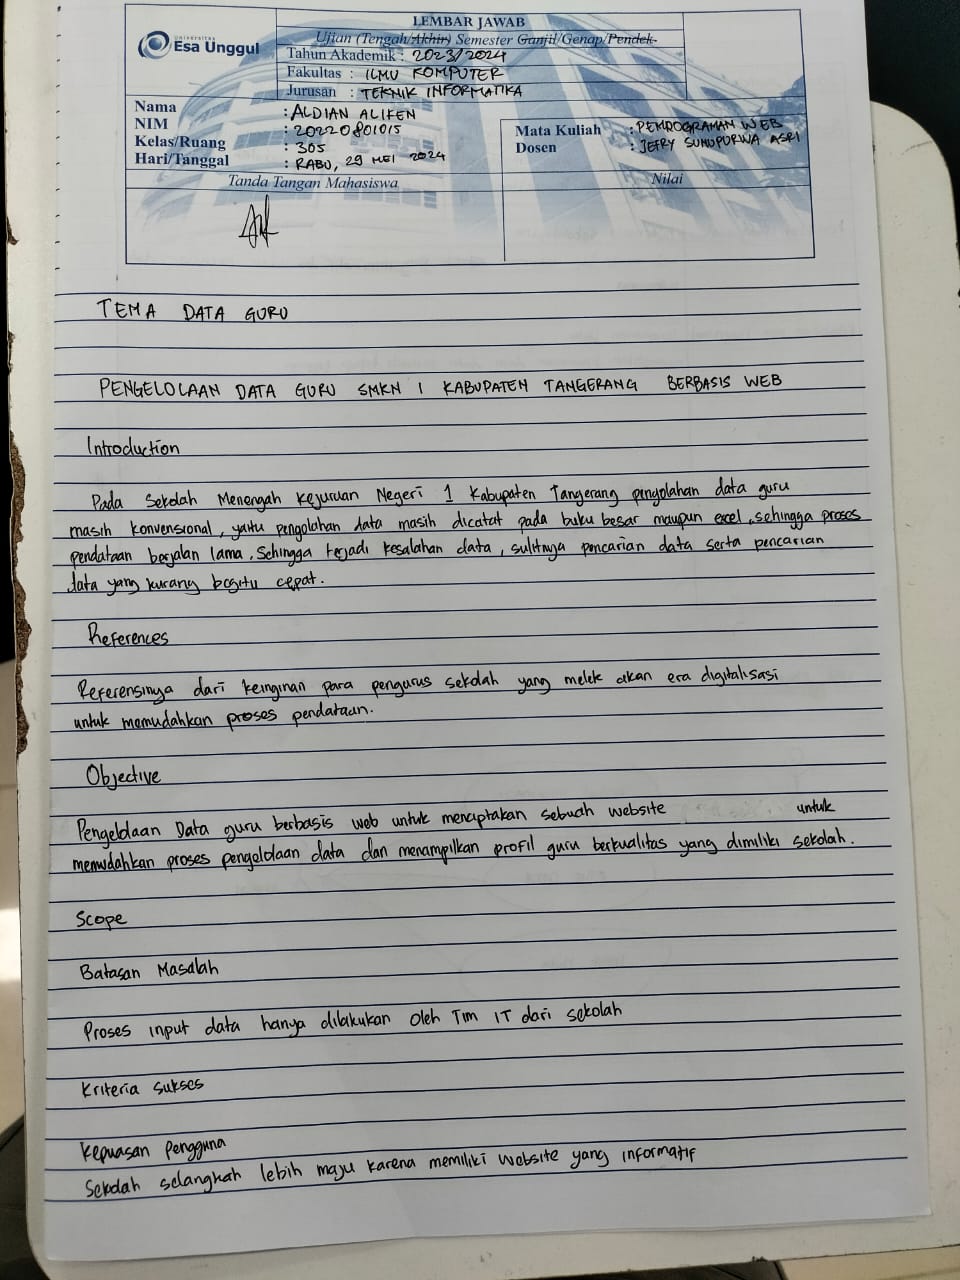 LEMBAR JAWAB
Universitas
Esa Unggul
Ujian (Tengah/Akhir) Semester Ganjil/Genap/Pendek
Tahun Akademik : 2023/2024
Fakultas : ILMU KOMPUTER
Jurusan : TEKNIK INFORMATIKA
Nama : ALDIAN ALIFEN
NIM : 20220801015
Kelas/Ruang : 305
Hari/Tanggal : RABU, 29 MEI 2024
Mata Kuliah : PEMROGRAMAN WEB
Dosen : JEFRY SUNUPURWA ASRI
Tanda Tangan Mahasiswa
Nilai
TEMA DATA GURU
PENGELOLAAN DATA GURU SMKN 1 KABUPATEN TANGERANG BERBASIS WEB
Introduction
Pada Sekolah Menengah Kejuruan Negeri 1 Kabupaten Tangerang pengolahan data guru
masih konvensional, yaitu pengolahan data masih dicatat pada buku besar maupun excel, sehingga proses
pendataan berjalan lama, Sehingga terjadi kesalahan data, sulitnya pencarian data serta pencarian
data yang kurang begitu cepat.
References
Referensinya dari keinginan para pengurus sekolah yang melek akan era digitalisasi
untuk memudahkan proses pendataan.
Objective
Pengelolaan Data guru berbasis web untuk menciptakan sebuah website untuk
memudahkan proses pengelolaan data dan menampilkan profil guru berkualitas yang dimiliki sekolah.
Scope
Batasan Masalah
Proses input data hanya dilakukan oleh Tim IT dari sekolah
Kriteria sukses
Kepuasan pengguna
Sekolah selangkah lebih maju karena memiliki website yang informatif